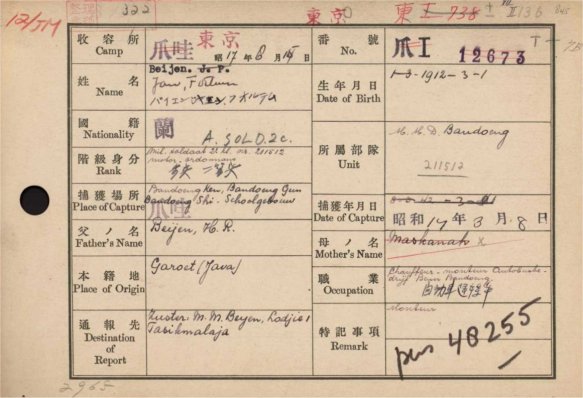 12/JM
1322
東京
東I 738
II 136
收容所
Camp
爪哇
東京
昭17年8月15日
番號
No.
爪I
12673
姓名
Name
Beijen. J. F.
Jan, Fortuin
生年月日
Date of Birth
1-3-1912-3-1
國籍
Nationality
蘭
A. SOLD. 2c.
所屬部隊
Unit
M.M.D. Bandoeng
211512
階級身分
Rank
Mil. soldaat 2e kl. nr. 211512
motor. ordonnans
捕獲場所
Place of Capture
Bandoeng Ken, Bandoeng Gun
Bandoeng Shi. Schoolgebouw
爪哇
捕獲年月日
Date of Capture
昭和17年3月8日
父ノ名
Father's Name
Beijen, H. R.
母ノ名
Mother's Name
Maskanah x
本籍地
Place of Origin
Garoet (Java)
職業
Occupation
Chauffeur-monteur Autobusbe-
drijf Beun Bandoeng
通報先
Destination
of
Report
Zuster: M. M. Beijen, Lodjie 1
Tasikmalaja
特記事項
Remark
Monteur
pus 48255
2965